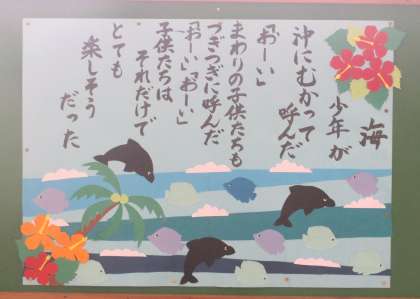 海
少年が
沖にむかって呼んだ
「おーい」
まわりの子供たちも
つぎつぎに呼んだ
「おーい」「おーい」
子供たちは
それだけで
とても
楽しそう
だった